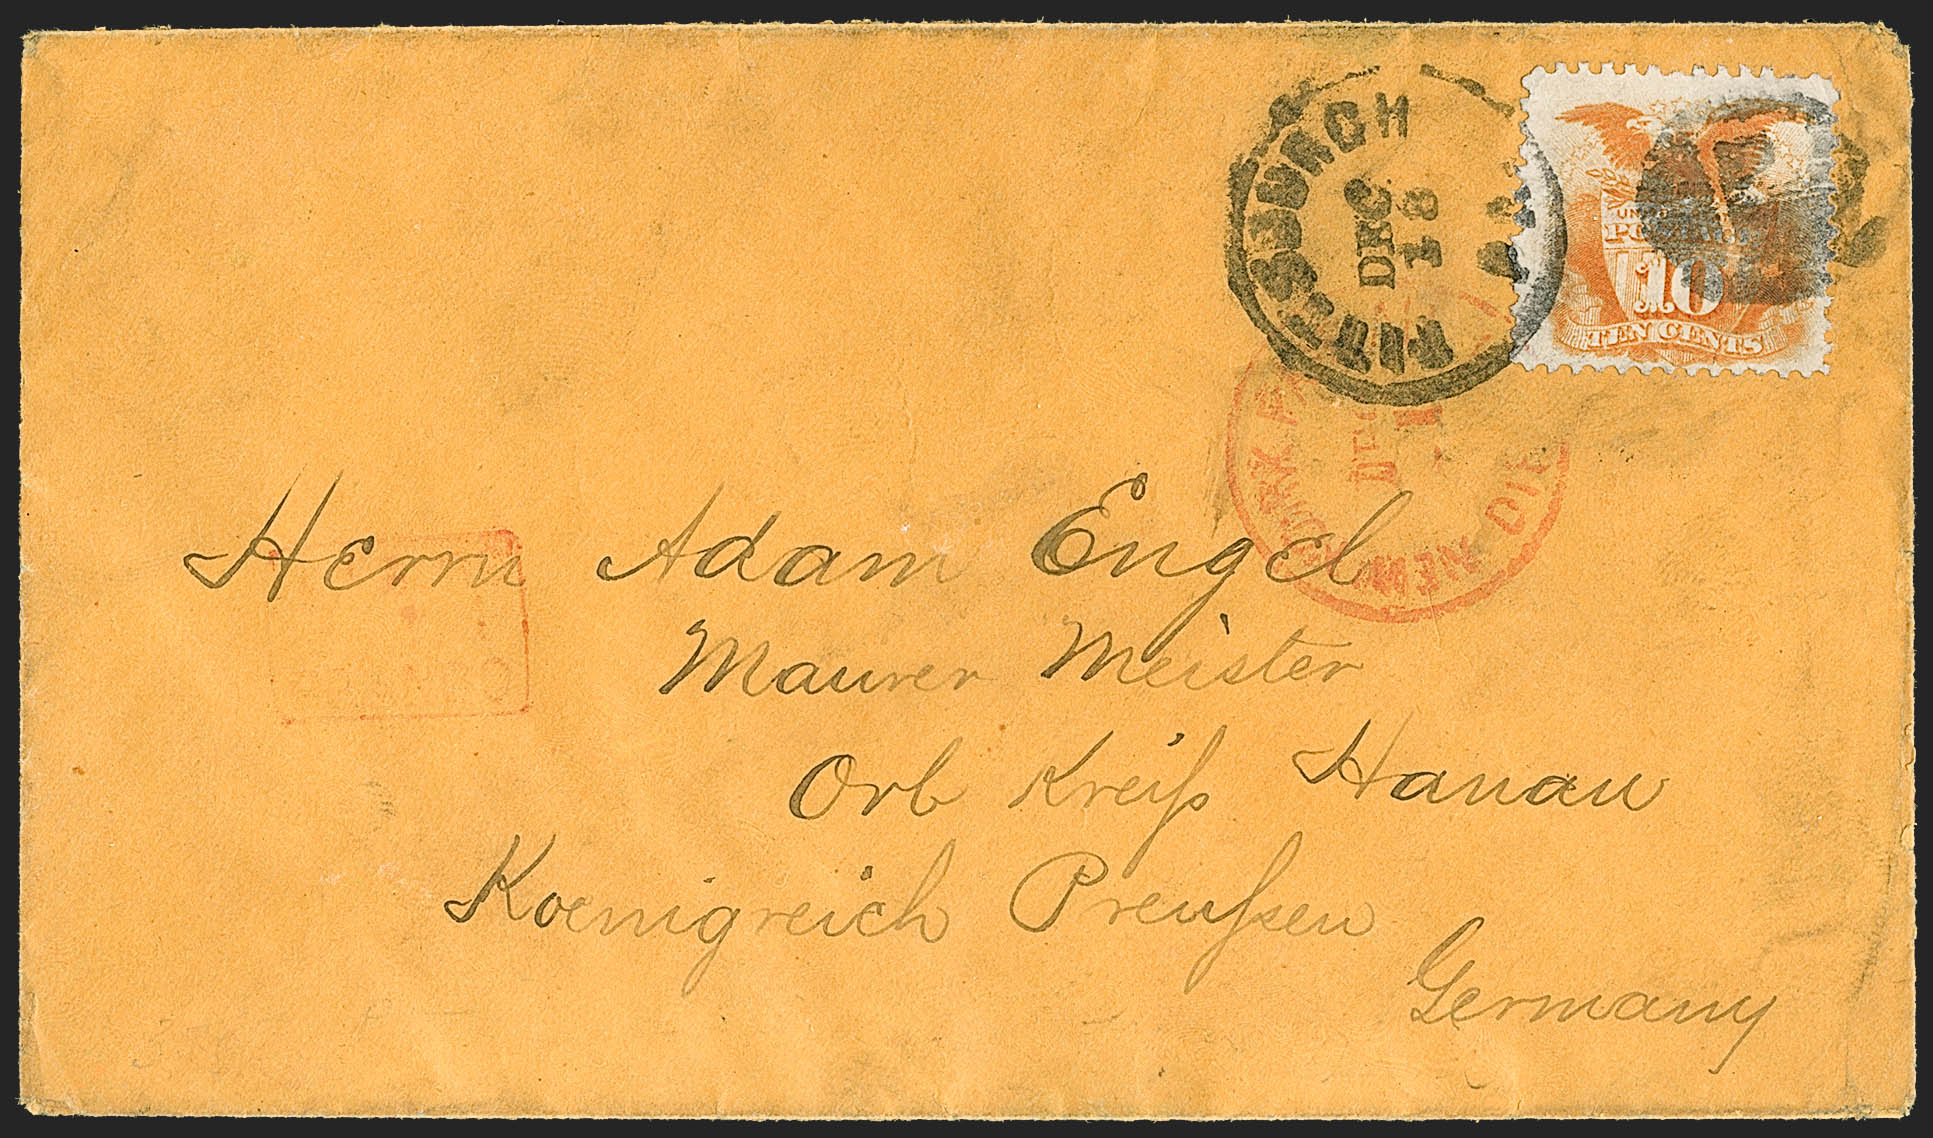 PITTSBURGH
DEC.
18
UNITED
POSTAGE
10
TEN CENTS
NEW YORK PA
DIR
Herrn Adam Engel
Maurer Meister
Orb Kreiß Hanau
Koenigreich Preußen
Germany